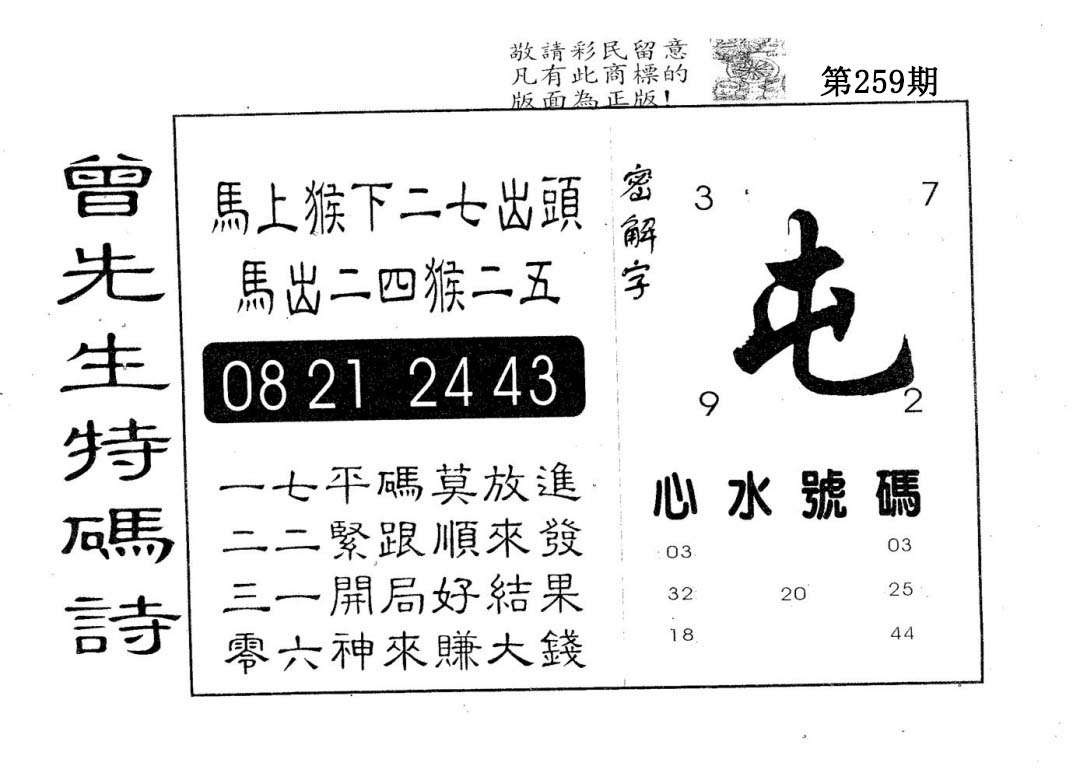 敬請彩民留意
凡有此商標的
版面為正版!
第259期
曾先生特碼詩
馬上猴下二七出頭
馬出二四猴二五
08 21 24 43
一七平碼莫放進
二二緊跟順來發
三一開局好結果
零六神來賺大錢
密解字
3 7
屯
9 2
心水號碼
03 03
32 20 25
18 44